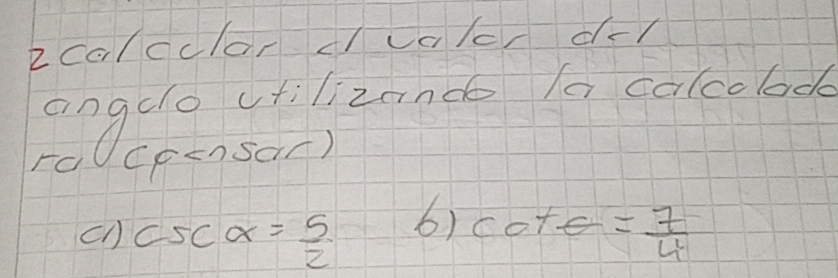 2 calcular el valor del
angulo utilizando la calculado
ra (pensar)
a) csc α = 5/2 b) cot θ = 7/4